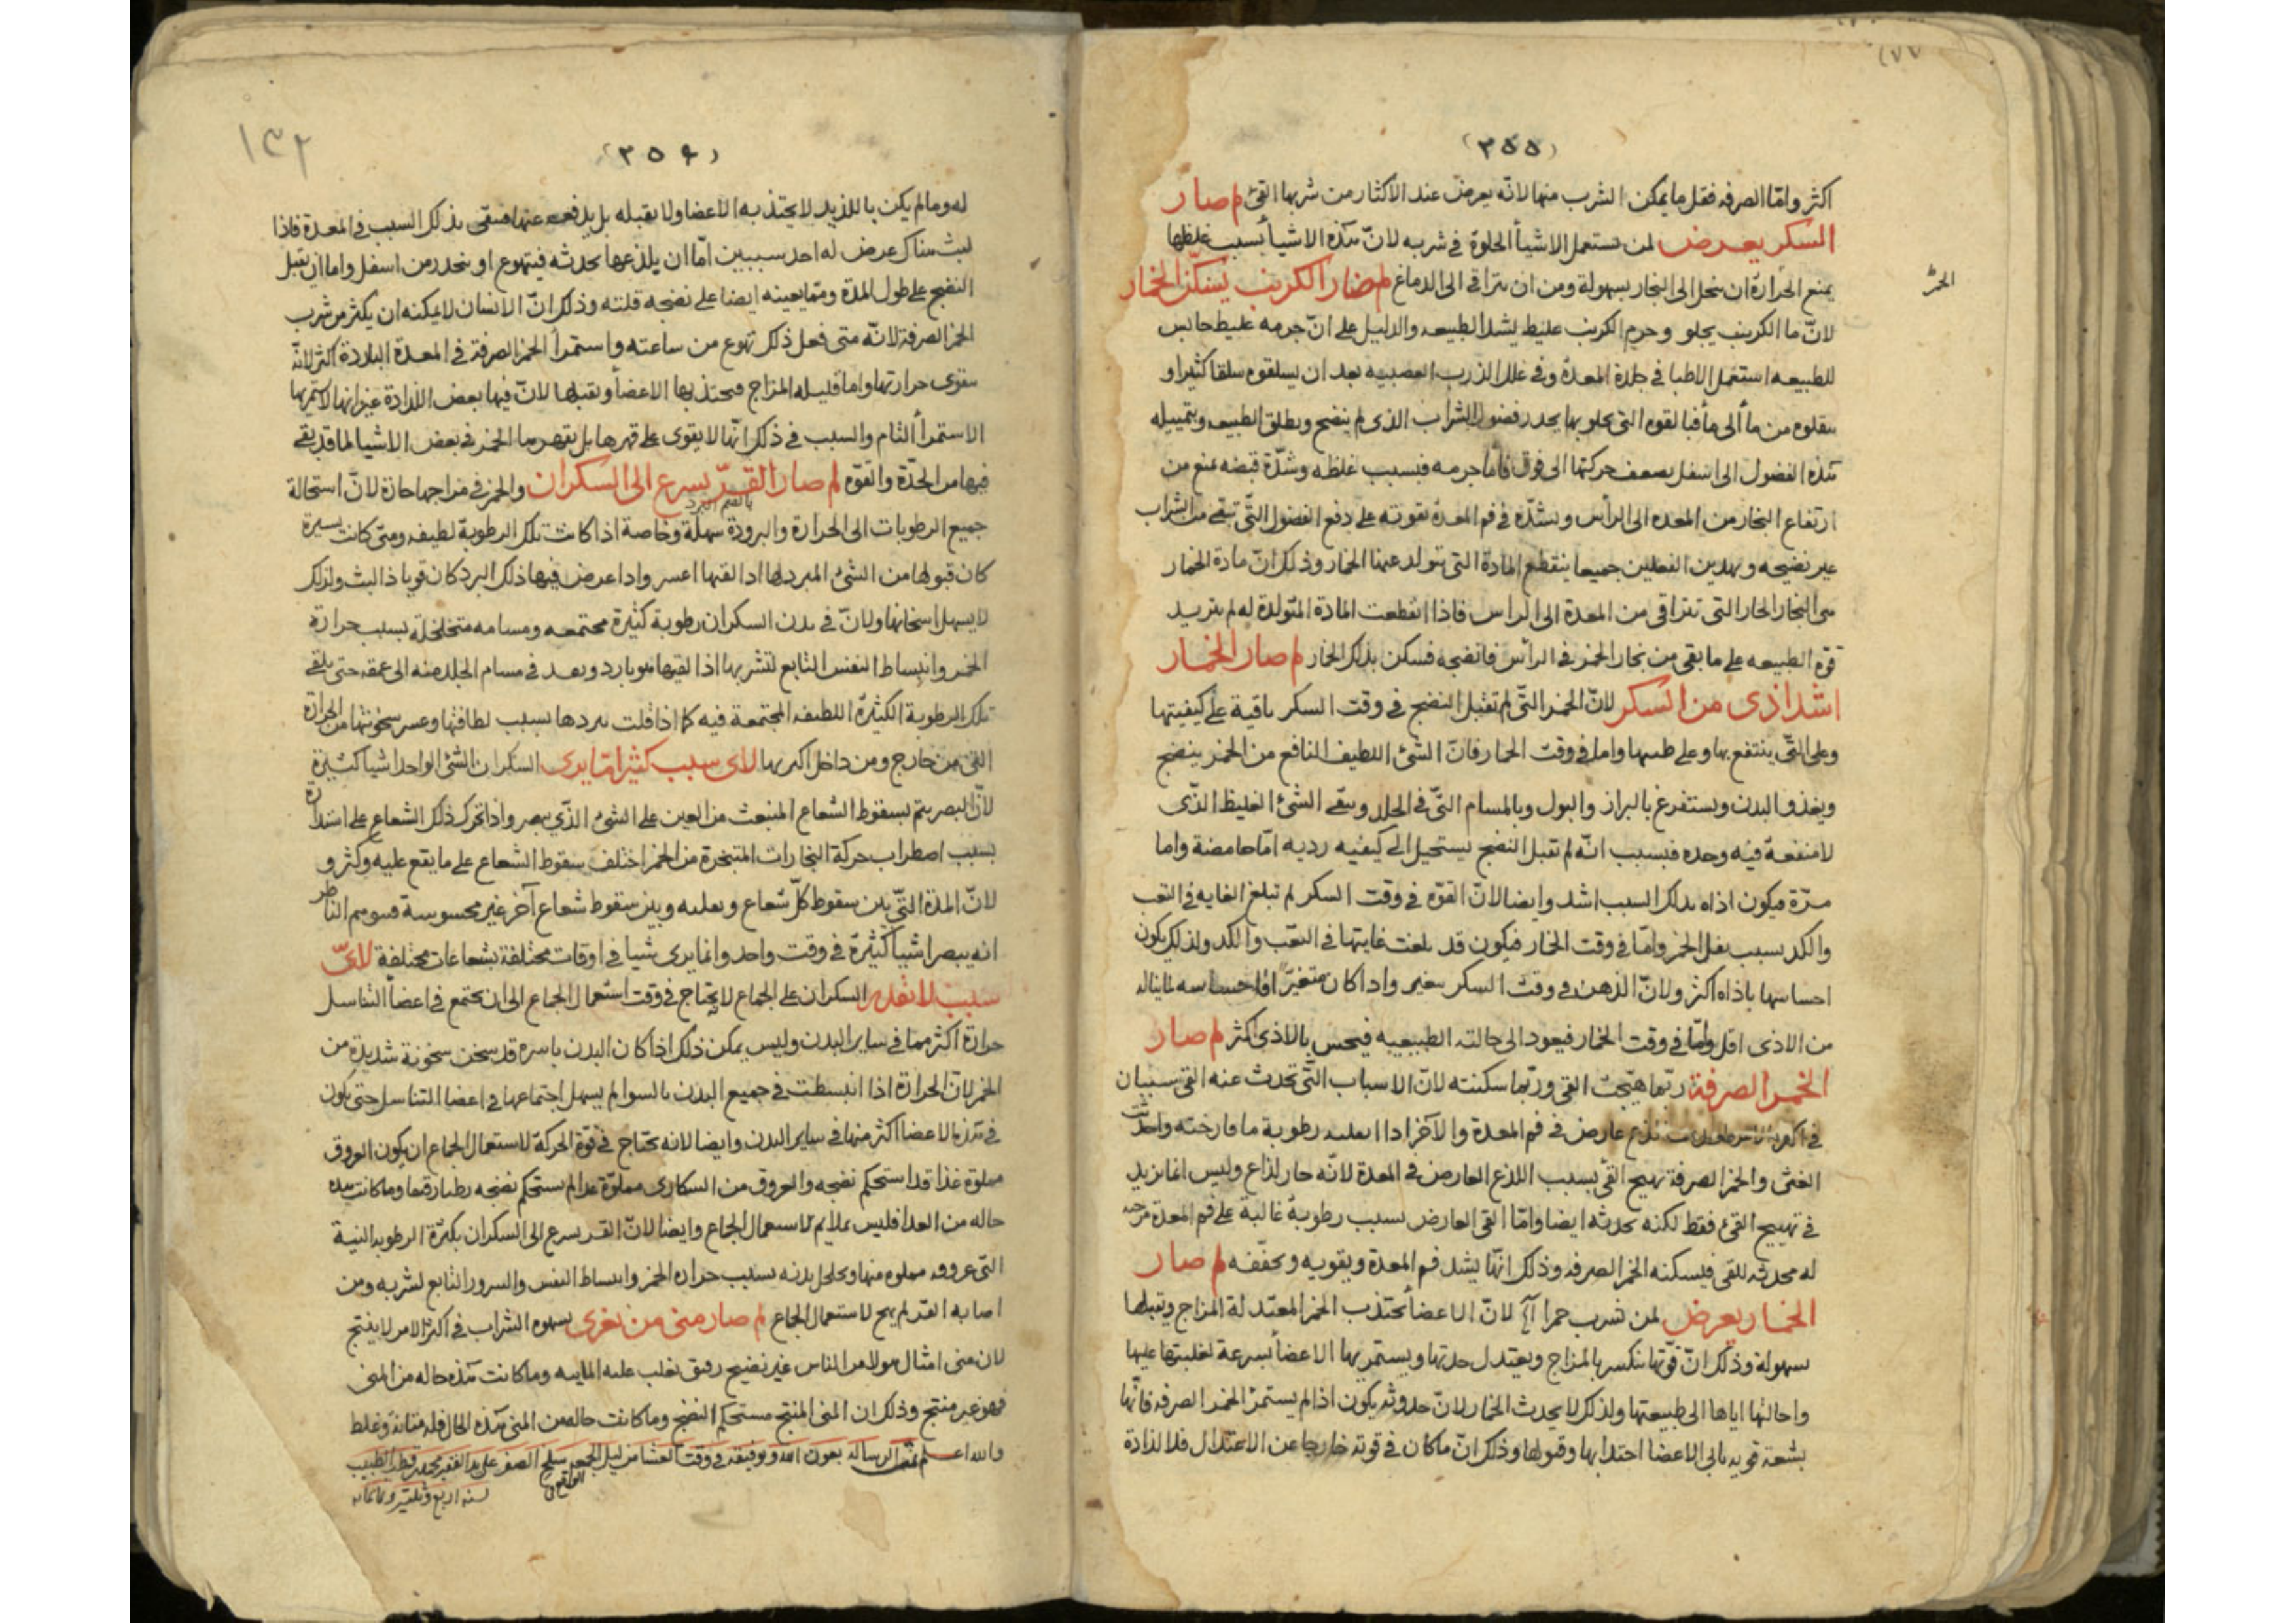 ١٧٧
(٣٥٥)
اكثر وامّا الصرفه فقل ما يمكن الشرب منها لانّه يعرض عند الاكثار من شربها القئ لم صار
السكر يعرض لمن يستعمل الاشيأ الحلوة فى شربه لانّ هذه الاشيأ بسبب غلظها
يمنع الحرارة ان تنحل الى البخار بسهولة ومن ان يتراقى الى الدماغ لم صار الكرنب يسكّن الخمار
الخمر
لانّ ما الكرنب يجلو وجرم الكرنب غليظ يشد الطبيعه والدليل على انّ جرمه غليظ حابس
للطبيعه استعمل الاطبا فى المعدة وفى علل الذرب بعد ان يسلقوه سلقا كثيرا و
ينقلوه من مأ الى مأ فبالقوه التى يجلو بها يحدر فضول الشراب الذى لم ينضج ويطلق الطبيعه وبتمييله
هذه الفضول الى اسفل يضعف حركتها الى فوق فأما جرمه فبسبب غلظه وشدّة قبضه يمنع من
ارتفاع البخار من المعده الى الرأس ويشدّه فى فم المعدة بقوته على دفع الفضول التّى تبقى من الشراب
غير نضيجه وبهذين الفعلين جميعا ينقطع المادة التى يتولد عنها الخمار وذلك انّ مادة الخمار
هى البخار الحار التى تتراقى من المعدة الى الراس فاذا انقطعت المادة المتولدة له لم يتزيد
قوه الطبيعه على ما بقى من بخار الخمر فى الرأس فانضجه فسكن بذلك الخمار لم صار الخمار
اشد اذى من السكر لانّ الخمر التّى لم تقبل النضج فى وقت السكر باقية على كيفيتها
وعلى التّى ينتفع بها وعلى طبعها واما فى وقت الخمار فانّ الشئ اللطيف النافع من الخمر ينضج
ويغذو البدن ويستفرغ بالبراز والبول وبالمسام التّى فى الجلد ويبقى الشئ الغليظ الذّى
لا منفعة فيه وحده فبسبب انّه لم تقبل النضج يستحيل الى كيفيه رديه امّا حامضة واما
مرّة فيكون اذاه بذلك السبب اشد وايضا لانّ القوّه فى وقت السكر لم تبلغ الغايه فى التعب
والكد بسبب الخمر وامّا فى وقت الخمار فيكون قد بلغت غايتها فى التعب والكد ولذلك يكون
احساسها باذاه اكثر ولانّ الذهن فى وقت السكر متغير واذا كان متغيّرا احساسه لما يناله
من الاذى اقل وامّا فى وقت الخمار فيعود الى حالته الطبيعيه فيحس بالاذى اكثر لم صار
الخمر الصرفة ربّما هيّجت القى وربّما سكنته لانّ الاسباب التّى تحدث عنه القى سببان
فى اكثر لذع عارض فى فم المعدة والآخر اذا رطوبة ما فارخته واحدثت
الغثى والخمر الصرفة تهيج القئ بسبب اللذع العارض فى المعدة لانّه حار لذاع وليس انما يزيد
فى تهييج القئ فقط لكنه يحدثه ايضا وامّا القى العارض بسبب رطوبة غالبة على فم المعدة مرخيه
له محدثه للقى فيسكنه الخمر الصرفه وذلك انّها يشد فم المعدة ويقويه ويجفّفه لم صار
الخمار يعرض لمن شرب خمرا لانّ الاعضأ تجتذب الخمر المعتدلة المزاج وتقبلها
بسهولة وذلك انّ قوّتها تنكسر بالمزاج ويعتدل حدتها ويستمريها الاعضأ بسرعة لغلبتها عليها
واحالتها اياها الى طبيعتها ولذلك لا يحدث الخمار لانّ حدوثه يكون اذا لم يستمرئ الخمر الصرفه فانّها
بشعة قويه يابى الاعضا اجتذابها وقبولها وذلك انّ ما كان فى قوته خارجا عن الاعتدال فلا لذاذة
١٣٢
(٣٥٦)
له وما لم يكن باللذيذ لا يجتذبه الاعضا ولا يقبله بل يدفعه عنها فيبقى بذلك السبب فى المعدة فاذا
لبث هناك عرض له احد سببين امّا ان يلذعها بحدثه فيتهوع او ينحدر من اسفل واما ان يقبل
النضج على طول المدة ومما يعينه ايضا على نضجه قلته وذلك انّ الانسان لا يمكنه ان يكثر من شرب
الخمر الصرفة لانّه متى فعل ذلك تهوع من ساعته واستمرأ الخمر الصرفة فى المعدة الباردة اكثر لانّه
يقوى حرارتها واما قليله المزاج فيجتذبها الاعضأ وتقبلها لانّ فيها بعض اللذاذة غير انها لا تستمريها
الاستمرأ التام والسبب فى ذلك انّها لا يقوى على قهرها بل يقهرها الخمر فى بعض الاشيا لما قد بقى
فيها من الحدّة والقوّه لم صار القرّ يسرع الى السكران والخمر فى مزاجها حارة لانّ استحالة
بالضم البرد
جميع الرطوبات الى الحرارة والبرودة سهلة وخاصة اذا كانت تلك الرطوبة لطيفه ومتى كانت يسيرة
كان قبولها من الشئ المبرد لها اذا لقيها اعسر واذا عرض فيها ذلك البرد كان قويا ذا لبث ولذلك
لا يسهل اسخانها ولانّ فى بدن السكران رطوبة كثيرة مجتمعه ومسامه متخلخلة بسبب حرارة
الخمر وانبساط النفس التابع لشربها اذا لقيها هو بارد وبعد فى مسام الجلد منه الى عمقه حتى يلقى
تلك الرطوبة الكثيرة اللطيفه المجتمعة فيه كما اذا قلت بردها بسبب لطافتها وعسر سخونتها من الحرارة
التى من خارج ومن داخل اكبر بها لاى سبب كثيرا مّا يرى السكران الشئ الواحد اشيا كثيرة
لانّ البصر يتم بسقوط الشعاع المنبعث من العين على الشئ الذّى يبصر واذا تحرك ذلك الشعاع على استدارة
بسبب اضطراب حركة البخارات المتبخرة من الخمر اختلف سقوط الشعاع على ما يقع عليه وكثر و
لانّ المدة التّى بين سقوط كلّ شعاع وبين سقوط شعاع آخر غير محسوسة فيوهم الناظر
انه يبصر اشيأ كثيرة فى وقت واحد وانما يرى شيا فى اوقات مختلفة بشعاعات مختلفة لاىّ
سبب لا يقدر السكران على الجماع لا يحتاج فى وقت استعمال الجماع الى ان يجتمع فى اعضأ التناسل
حرارة اكثر مما فى ساير البدن وليس يمكن ذلك اذا كان البدن باسره قد سخن سخونة شديدة من
الخمر لانّ الحرارة اذا انبسطت فى جميع البدن بالسوا لم يسهل اجتماعها فى اعضا التناسل حتى يكون
فى هذه الاعضا اكثر منها فى ساير البدن وايضا لانه يحتاج فى قوّة الحركة لاستعمال الجماع ان يكون العروق
مملوة غذا قد استحكم نضجه والعروق من السكارى مملوّة غذا لم يستحكم نضجه رطبا رقيقا وما كانت هذه
حاله من الغذا فليس بملايم لاستعمال الجماع وايضا لانّ القر يسرع الى السكران بكثرة الرطوبه النية
التى عروقه مملوه منها ويخلخل بدنه بسبب حراره الخمر وانبساط النفس والسرور التابع لشربه ومن
اصابه القر لم يهج لاستعمال الجماع لم صار منى من يغرى بشهوه الشراب فى اكثر الامر لا ينتج
لان منى امثال هولا من الناس غير نضيج رقيق يغلب عليه المائيه وما كانت هذه حاله من المنى
فهو غير منتج وذلك ان المنى المنتج مستحكم النضج وما كانت حاله من المنى هذه الحال فله متانة وغلظ
والله اعلم تمّت الرساله بعون الله وتوفيقه فى وقت العشا من ليل الجمعه سلخ الصفر على يد الفقير محمد الطبيب
سنه اربع وثلثين وثمانمائه